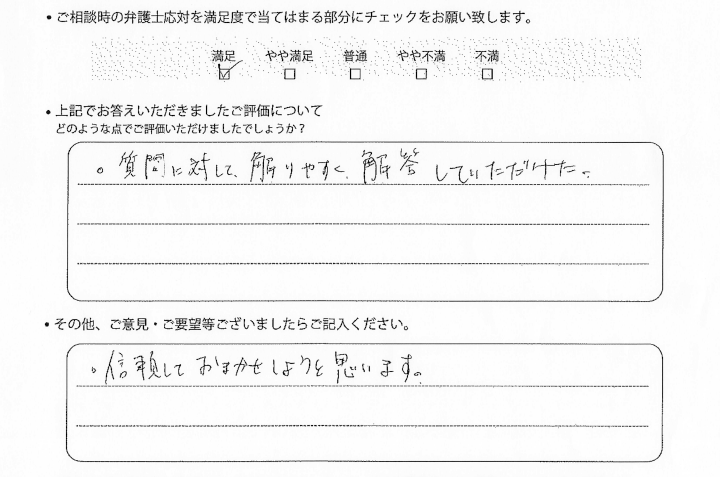 • ご相談時の弁護士応対を満足度で当てはまる部分にチェックをお願い致します。
満足 やや満足 普通 やや不満 不満
☑ ☐ ☐ ☐ ☐
• 上記でお答えいただきましたご評価について
どのような点でご評価いただけましたでしょうか？
。質問に対して、解りやすく、解答していただけた。
• その他、ご意見・ご要望等ございましたらご記入ください。
。信頼しておまかせしようと思います。